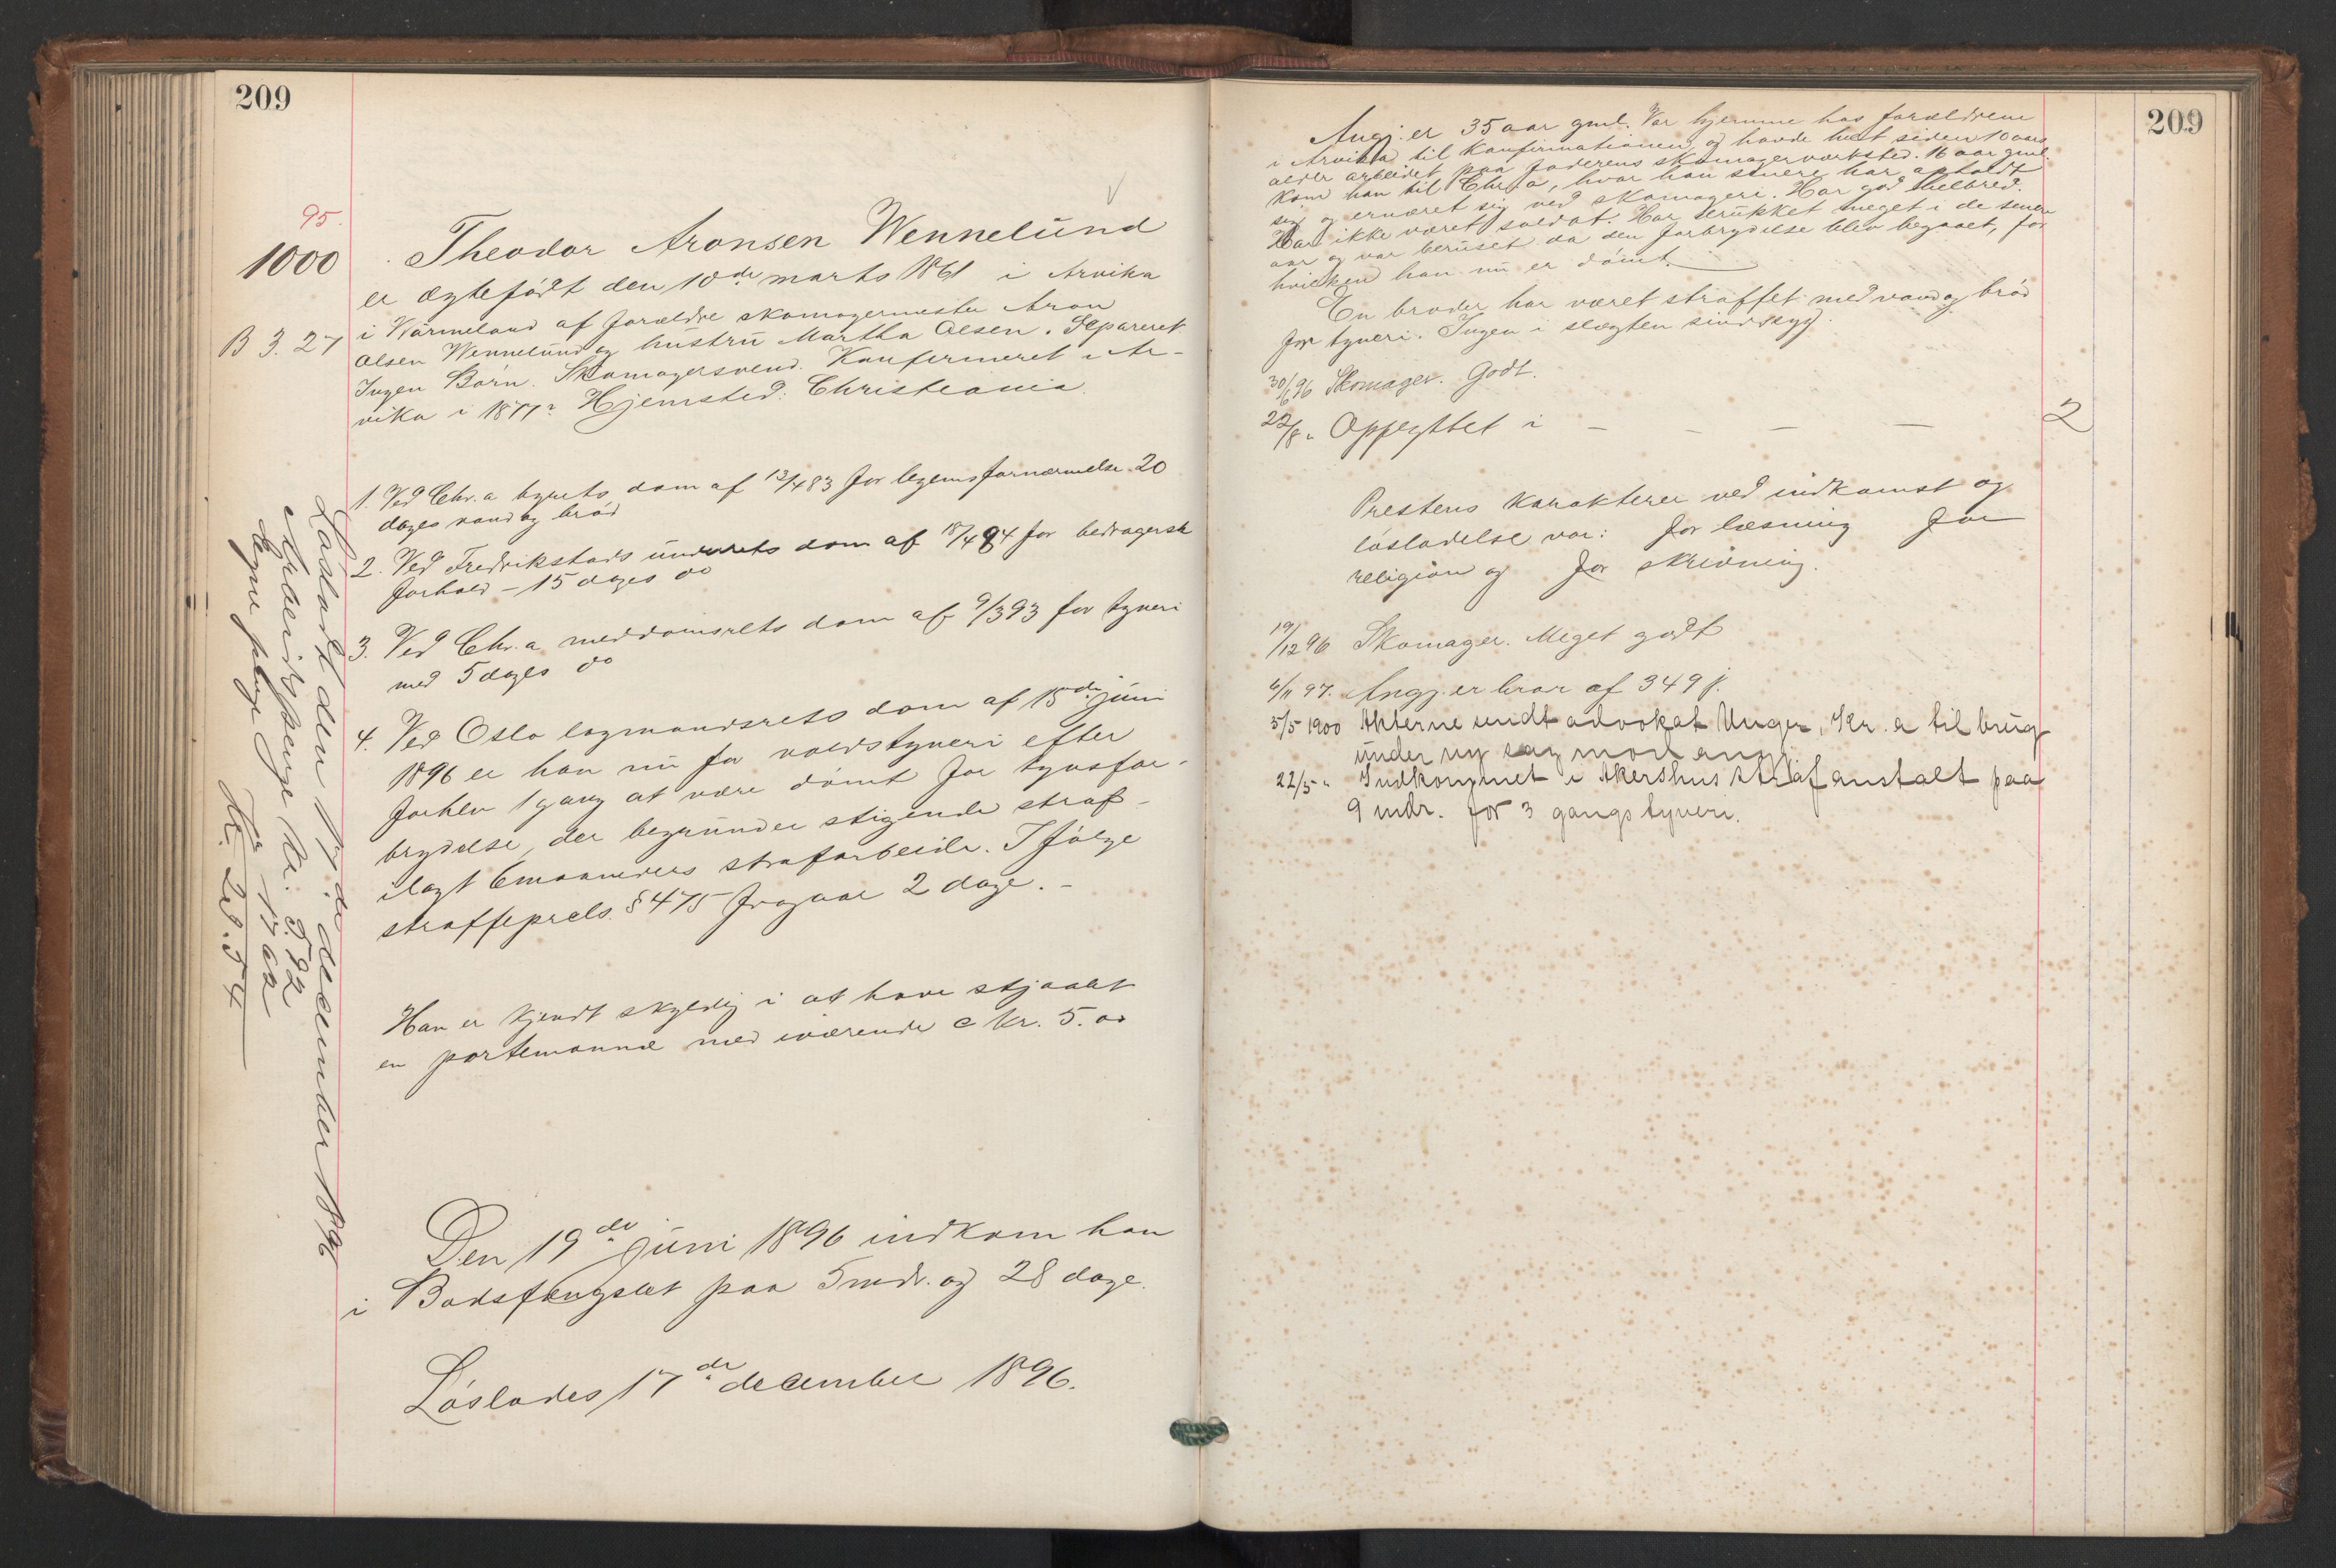 209
95.
1000
B 3. 27
Theodor Aronsen Wennelund
er ægtefødt den 10de marts 1861 i Arvika
i Värmeland af forældre skomagermester Aron
Olsen Wennelund og hustru Martha Olsen. Separeret
Ingen Børn. Skomagersvend. Konfirmeret i Ar-
vika i 1877. Hjemsted: Christiania.
1. Ved Chr.a byrets dom af 13/4 83 for legemsfornærmelse 20
dages vand og brød
2. Ved Fredrikstads underrets dom af 18/4 84 for bedragersk
forhold – 15 dages do
3. Ved Chr.a meddomsrets dom af 9/3 93 for tyveri
med 5 dages do
4. Ved Oslo lagmandsrets dom af 15de juni
1896 er han nu for voldstyveri efter
forhen 1 gang at være dømt for tyvsfor-
brydelse, der begrunder stigende straf –
ilagt 6 maaneders strafarbeide. Ifølge
straffeprcls. § 475 fragaar 2 dage. –
Han er kjendt skyldig i at have stjaalet
en portemonnæ med iværende c kr. 5.00
Den 19de juni 1896 indkom han
i Bodsfængslet paa 5 mdr. og 28 dage.
Løslades 17de december 1896.
Løsladt den 17de december 1896
Arbeidspenge kr. 5.92
Egne penge " 17 62
Kr. 23.54
209
Angj. er 35 aar gml. Var hjemme hos forældrene
i Arvika til konfirmationen og havde helt siden 10 aars
alder arbeidet paa faderens skomagerværksted. 16 aar gml.
kom han til Chr.a, hvor han senere har opholdt
sig og ernæret sig ved skomageri. Har god helbred.
Har ikke været soldat. Har drukket meget i de senere
aar og var beruset da den forbrydelse blev begaaet, for
hvilken han nu er dømt.
En broder har været straffet med vand og brød
for tyveri. Ingen i slægten sindssyg.
30/6 96 Skomager. Godt.
22/8 " Opflyttet i – – – – 2
Prestens karakterer ved indkomst og
løsladelse var: for læsning for
religion og for skrivning.
19/12 96 Skomager. Meget godt
6/11 97. Angj. er bror af 349 f.
5/5 1900 Akterne sendt advokat Unger, Kr.a til brug
under ny sag mod angj.
22/5 " Indkommet i Akershus strafanstalt paa
9 mdr. for 3 gangs tyveri.